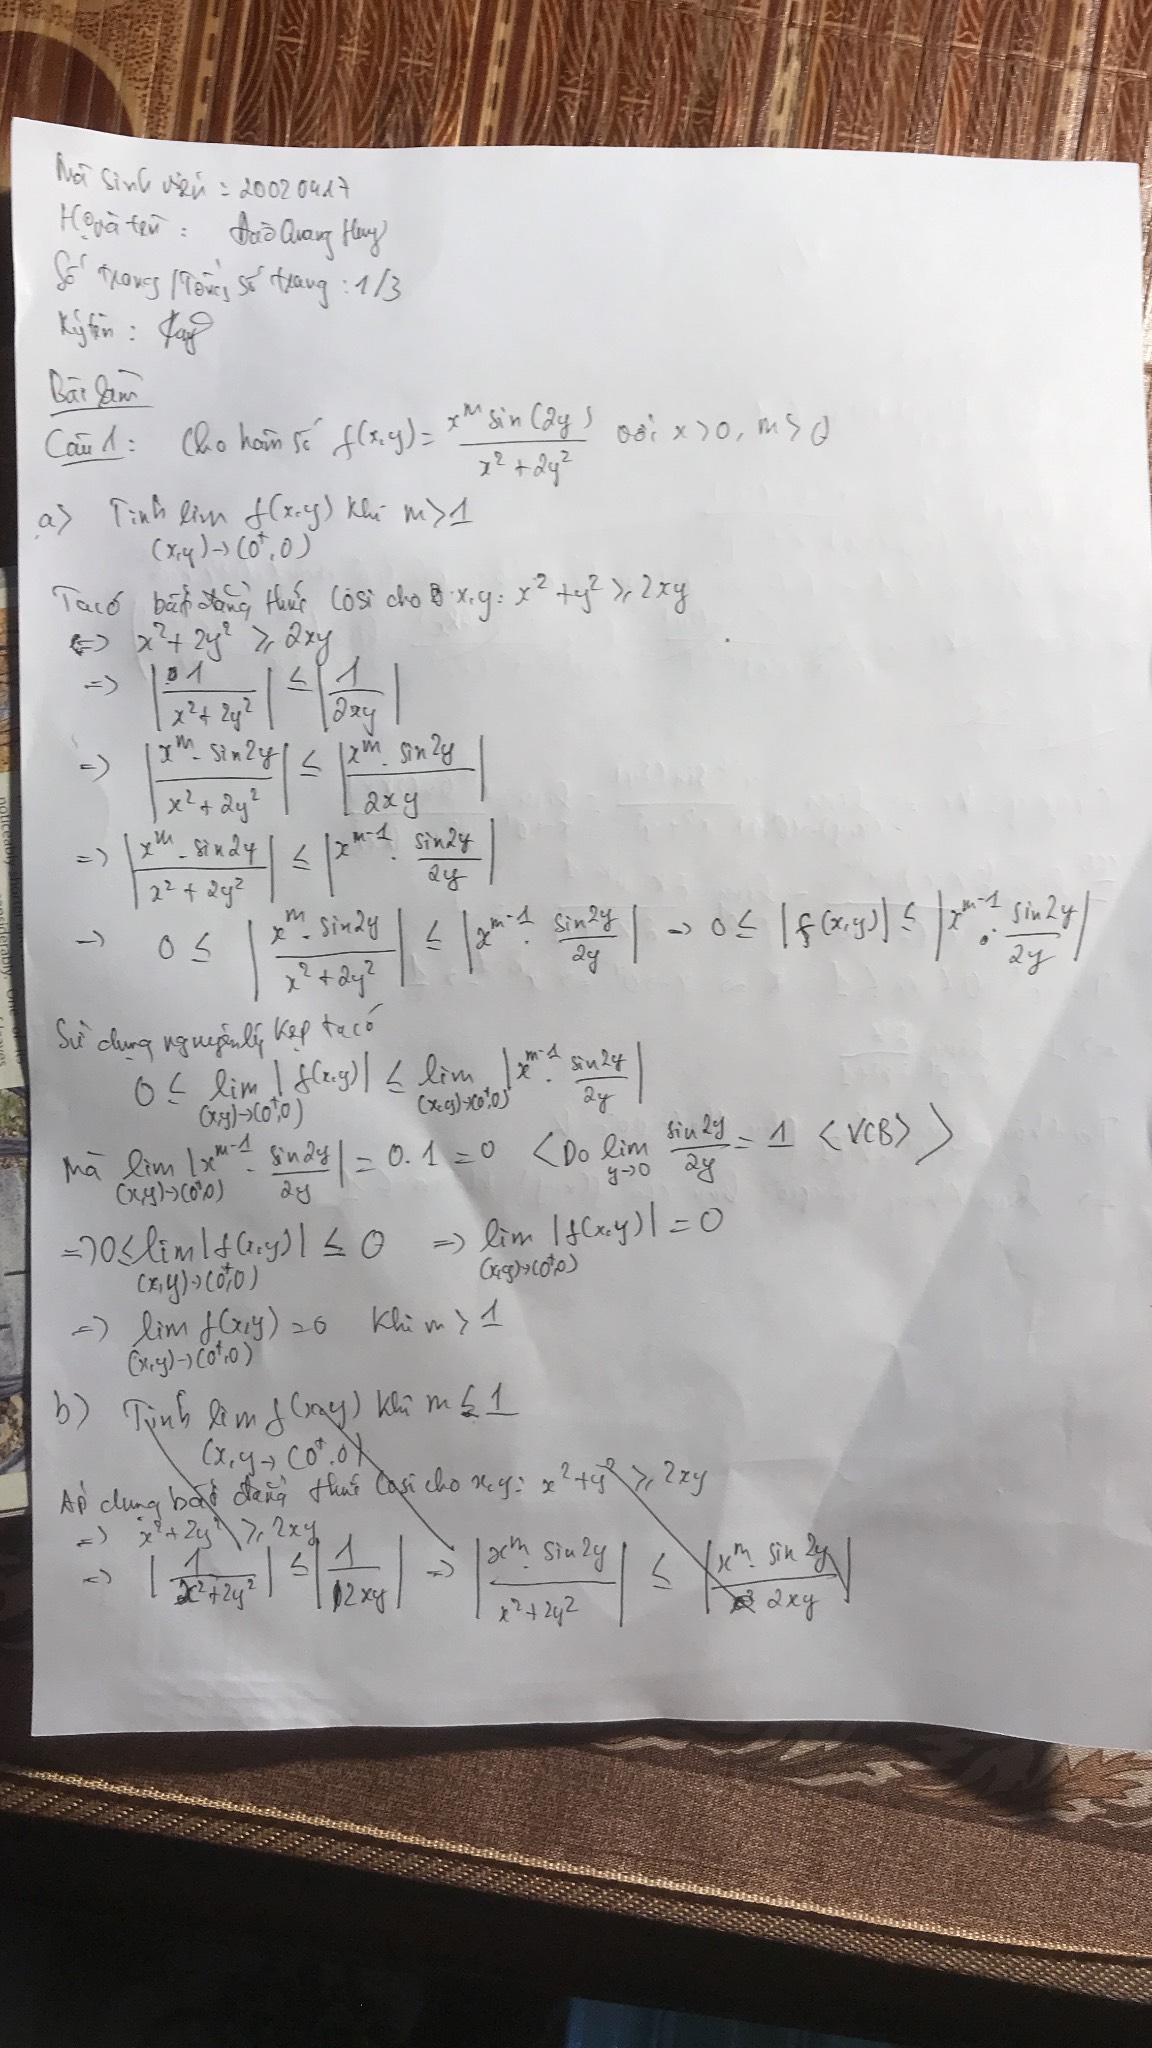 Mã sinh viên : 20020417
Họ và tên : Đào Quang Huy
Số trang/Tổng số trang : 1/3
Ký tên : Huy
Bài làm
Câu 1: Cho hàm số f(x,y) = \frac{x^m sin(2y)}{x^2 + 2y^2} với x > 0, m > 0
a) Tính lim_{(x,y)→(0^+,0)} f(x,y) khi m > 1
Ta có bất đẳng thức Côsi cho x,y: x^2 + y^2 ⩾ 2xy
<=> x^2 + 2y^2 ⩾ 2xy
=> |\frac{1}{x^2 + 2y^2}| ≤ |\frac{1}{2xy}|
=> |\frac{x^m . sin2y}{x^2 + 2y^2}| ≤ |\frac{x^m . sin2y}{2xy}|
=> |\frac{x^m . sin2y}{x^2 + 2y^2}| ≤ |x^{m-1} . \frac{sin2y}{2y}|
=> 0 ≤ |\frac{x^m . sin2y}{x^2 + 2y^2}| ≤ |x^{m-1} . \frac{sin2y}{2y}| => 0 ≤ |f(x,y)| ≤ |x^{m-1} . \frac{sin2y}{2y}|
Sử dụng nguyên lý kẹp ta có
0 ≤ lim_{(x,y)→(0^+,0)} |f(x,y)| ≤ lim_{(x,y)→(0^+,0)} |x^{m-1} . \frac{sin2y}{2y}|
Mà lim_{(x,y)→(0^+,0)} |x^{m-1} . \frac{sin2y}{2y}| = 0.1 = 0 <Do lim_{y→0} \frac{sin2y}{2y} = 1 <VCB> >
=> 0 ≤ lim_{(x,y)→(0^+,0)} |f(x,y)| ≤ 0 => lim_{(x,y)→(0^+,0)} |f(x,y)| = 0
=> lim_{(x,y)→(0^+,0)} f(x,y) = 0 khi m > 1
b) Tính lim_{(x,y→(0^+,0)} f(x,y) khi m ≤ 1
Áp dụng bất đẳng thức Côsi cho x,y: x^2 + y^2 ⩾ 2xy
=> x^2 + 2y^2 ⩾ 2xy
=> |\frac{1}{x^2 + 2y^2}| ≤ |\frac{1}{2xy}| => |\frac{x^m . sin2y}{x^2 + 2y^2}| ≤ |\frac{x^m . sin2y}{2xy}|